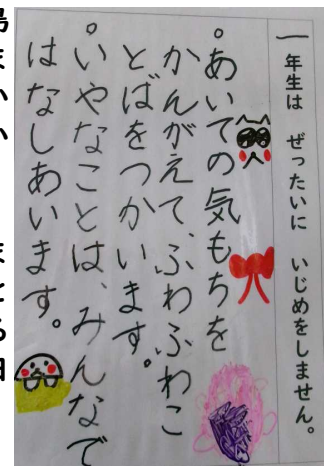 一年生は ぜったいに いじめをしません。
。あいての気もちを
かんがえて、ふわふわこ
とばをつかいます。
。いやなことは、みんなで
はなしあいます。